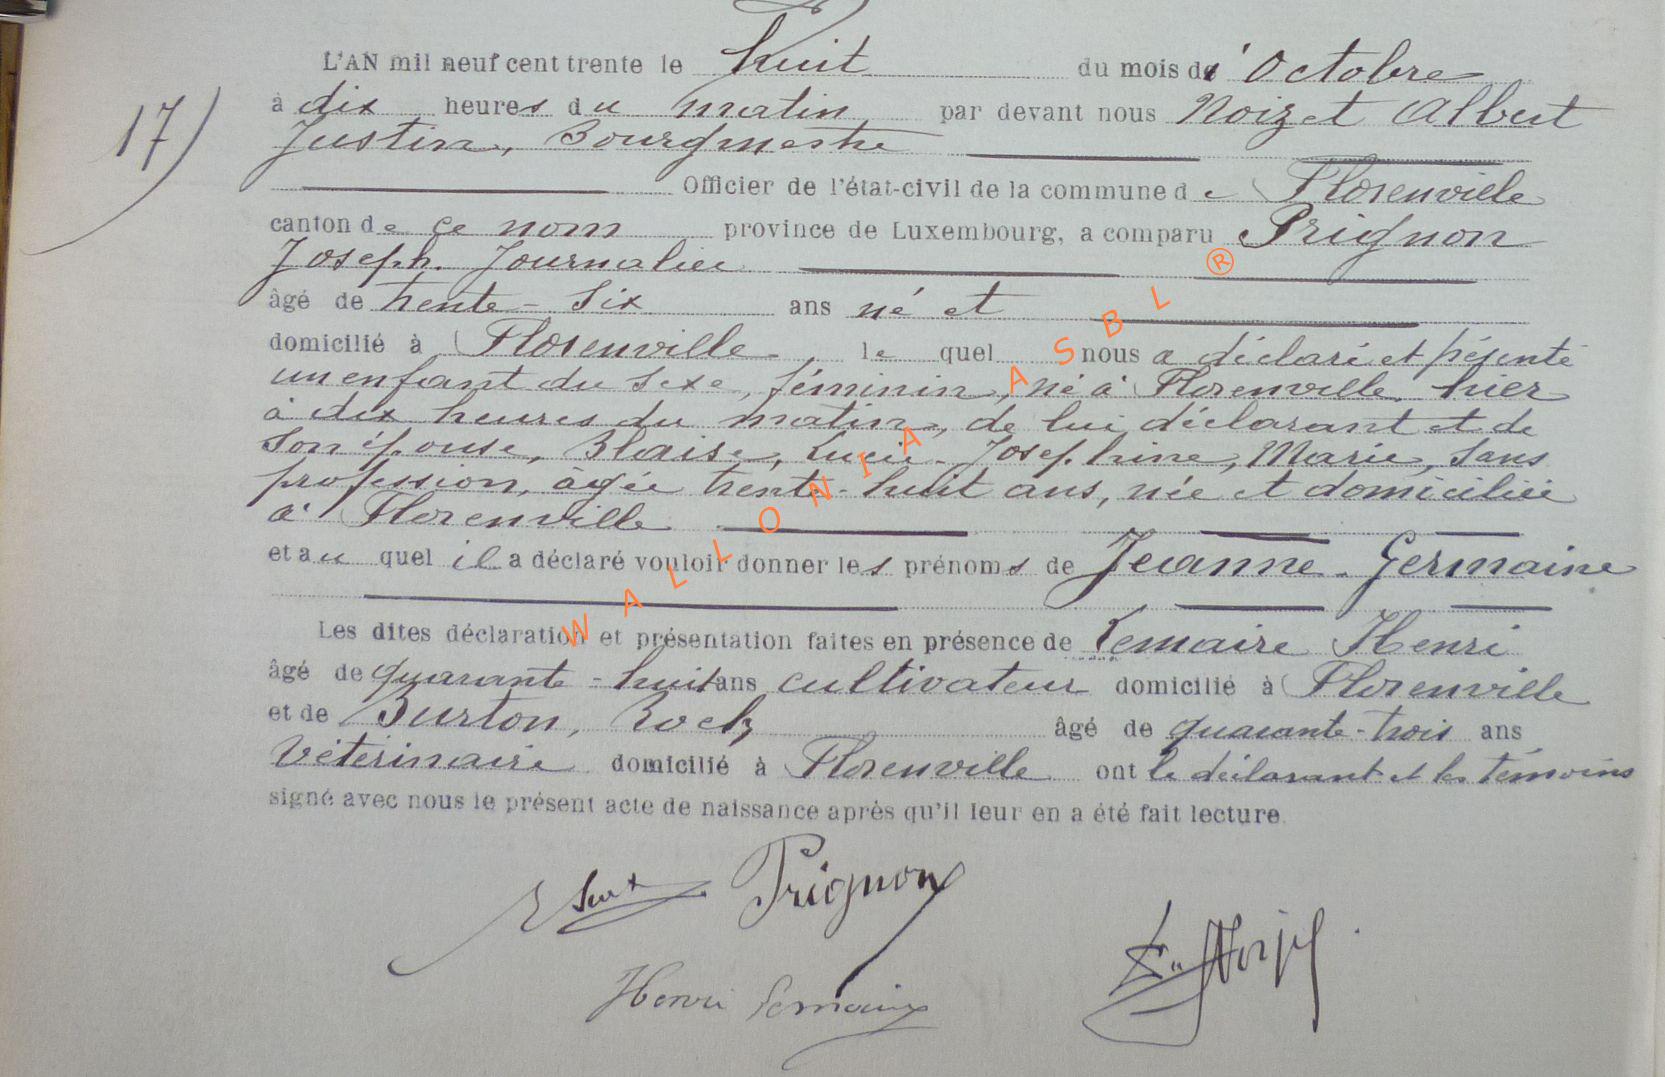 L'AN mil neuf cent trente le huit du mois d'Octobre
17) à dix heures du matin par devant nous Noizet Albert
Justin, Bourgmestre
Officier de l'état-civil de la commune de Florenville
canton de ce nom province de Luxembourg, a comparu Prignon
Joseph. Journalier
âgé de trente-six ans né et
domicilié à Florenville, le quel nous a déclaré et présenté
un enfant du sexe, féminin, né à Florenville, hier
à dix heures du matin, de lui déclarant et de
son épouse, Blaise, Lucie-Josephine, Marie, sans
profession, âgée trente-huit ans, née et domiciliée
à Florenville
et au quel il a déclaré vouloir donner les prénoms de Jeanne-Germaine
Les dites déclaration et présentation faites en présence de Lemaire Henri
âgé de quarante-huit ans cultivateur domicilié à Florenville
et de Burton, Roch âgé de quarante-trois ans
Vétérinaire domicilié à Florenville ont le déclarant et les témoins
signé avec nous le présent acte de naissance après qu'il leur en a été fait lecture.
Prignon
Noizet
Henri Lemaire
WALLONIA ASBL ®